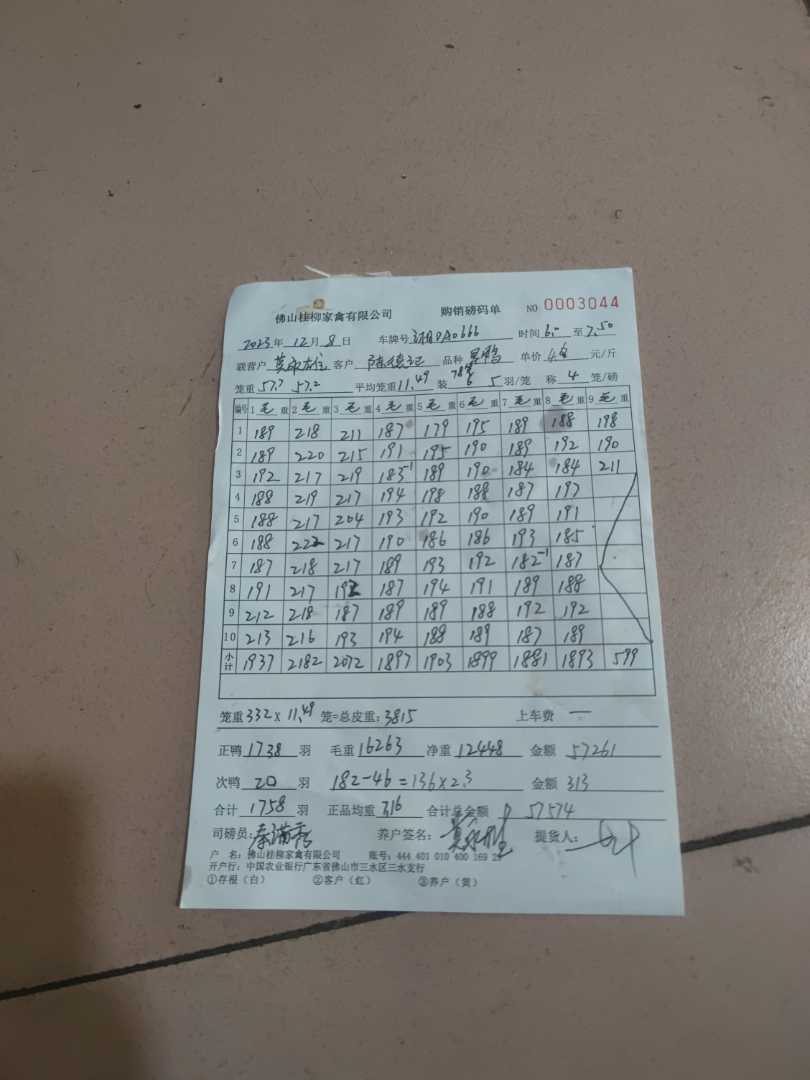 佛山桂柳家禽有限公司 购销磅码单 NO 0003044
2023年 12月 8日 车牌号 A0666 时间 6: 至 7.50
联营户 客户 陈德记 品种 鸭 单价 4.6 元/斤
笼重 57.7 57.2 平均笼重 11.49 装 78笼 6 5 羽/笼 称 4 笼/磅
编号 1 毛 重 2 毛 重 3 毛 重 4 毛 重 5 毛 重 6 毛 重 7 毛 重 8 毛 重 9 毛 重
1 189 218 211 187 179 195 189 188 198
2 189 220 215 191 195 190 189 192 190
3 192 217 219 183-1 189 190 184 184 211
4 188 219 217 194 198 188 187 197
5 188 217 204 193 192 190 189 191
6 188 222 217 190 186 186 193 185
7 187 218 217 189 193 192 182-1 187
8 191 217 192 187 194 191 189 188
9 212 218 187 189 189 188 192 192
10 213 216 193 194 188 189 187 189
小计 1937 2182 2072 1897 1903 1899 1881 1893 599
笼重 332 X 11.49 笼=总皮重: 3815 上车费 一
正鸭 1738 羽 毛重 16263 净重 12448 金额 57261
次鸭 20 羽 182-46=136×2.3 金额 313
合计 1758 羽 正品均重 7.16 合计总金额 57574
司磅员: 秦满秀 养户签名: 提货人:
户 名: 佛山桂柳家禽有限公司 账号: 444 401 010 400 169 25
开户行: 中国农业银行广东省佛山市三水区三水支行
①存根(白) ②客户(红) ③养户(黄)